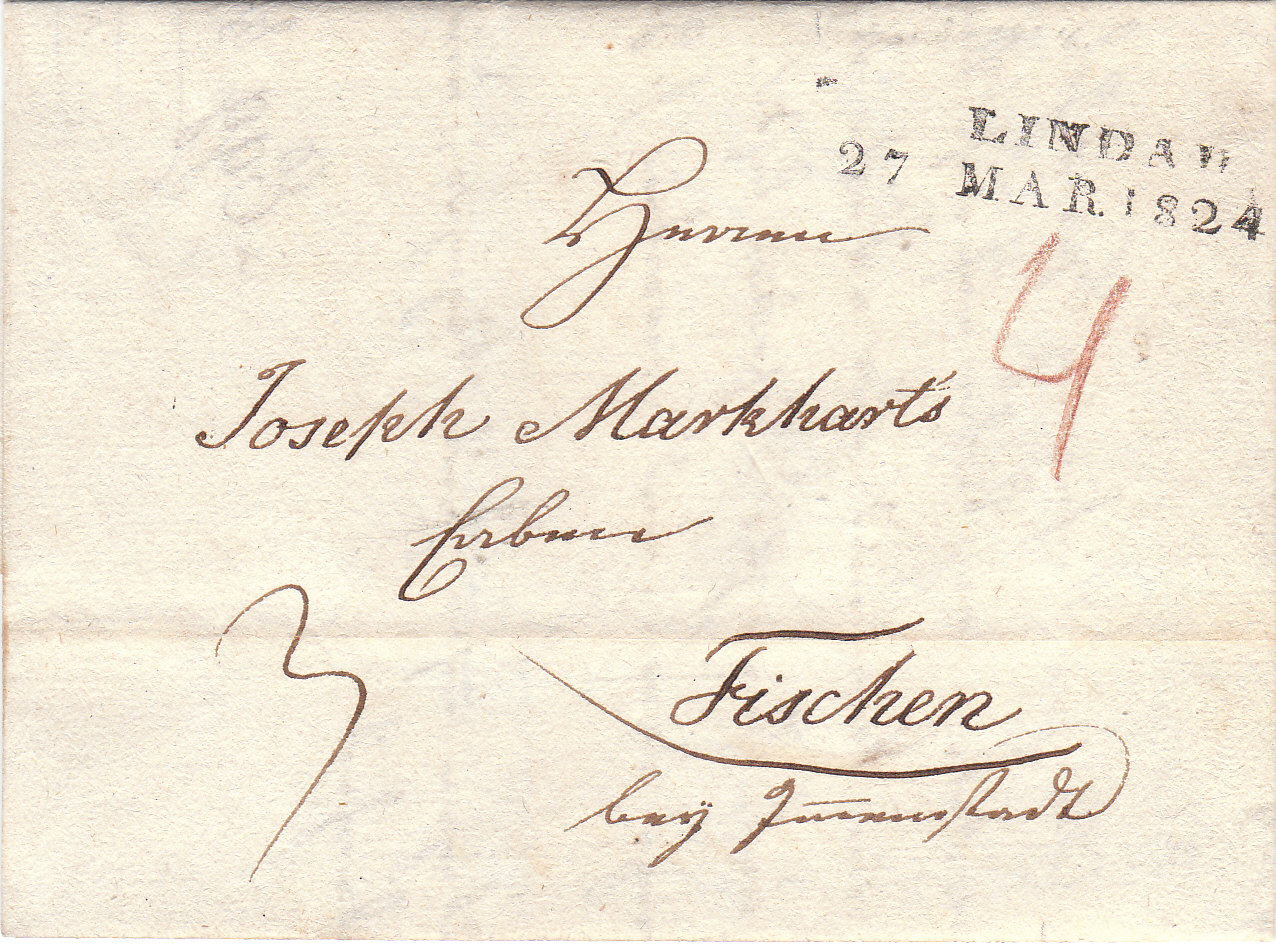 LINDAU
27 MAR. 1824
Herren
4
Joseph Markhart's
Erben
3
Fischen
bey Im̅enstadt